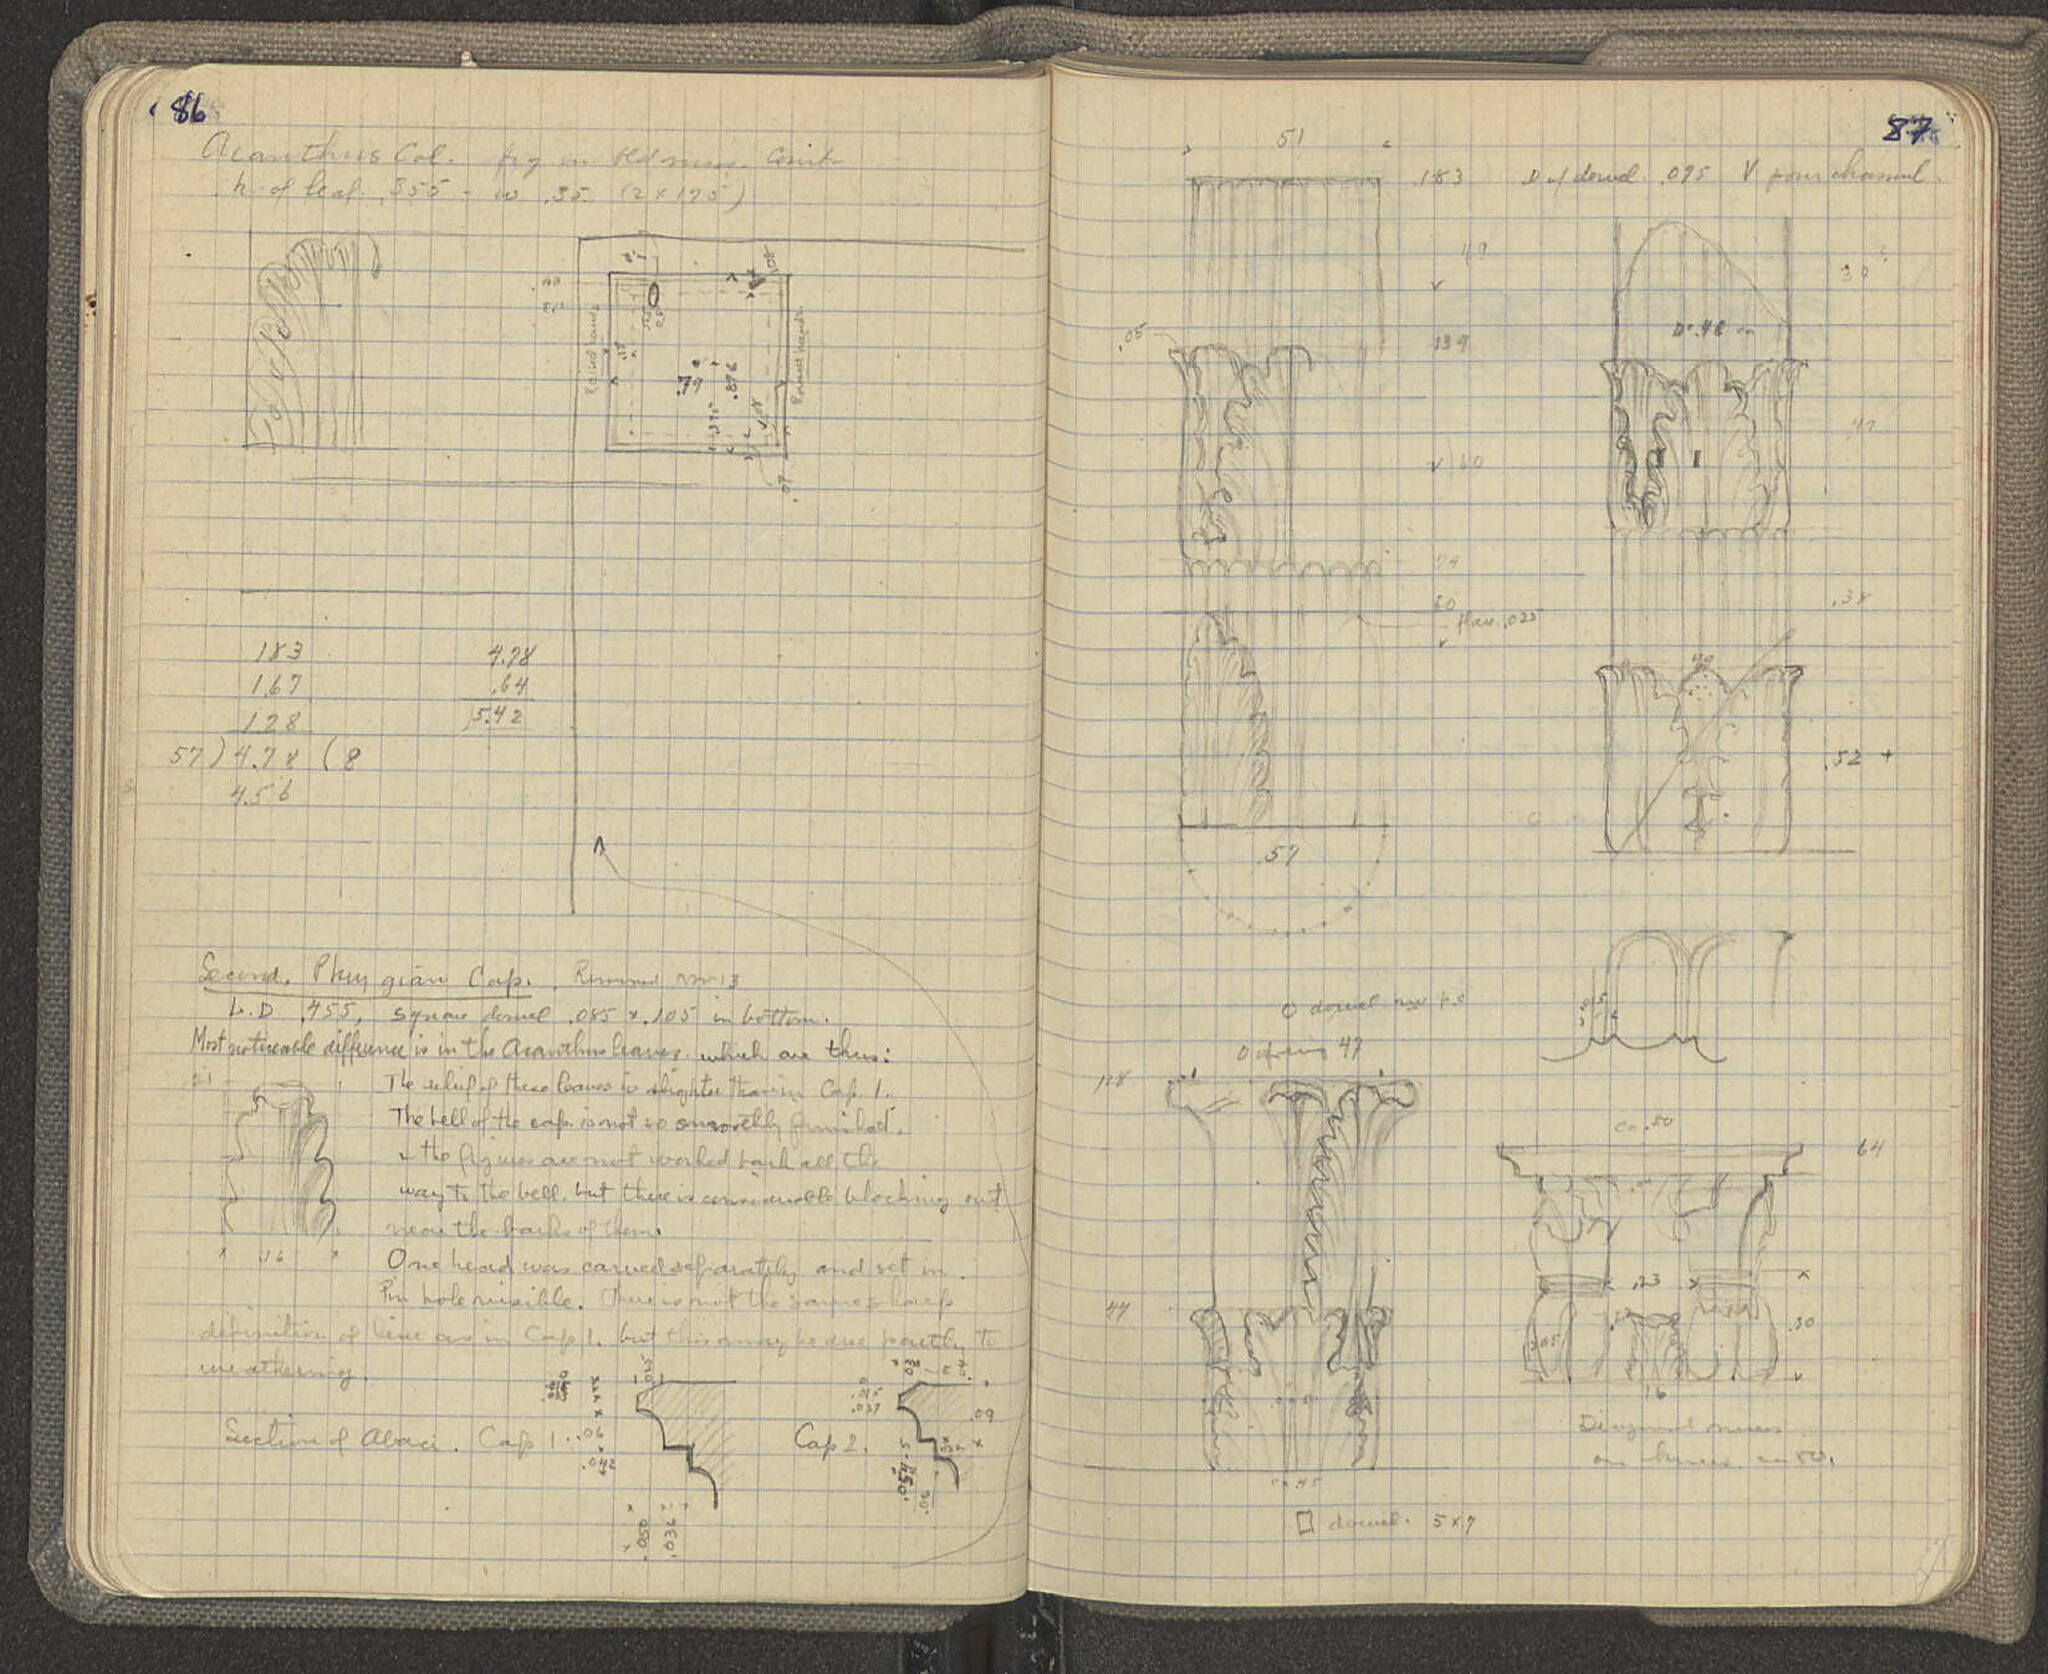 86
Acanthus Col. fig in Old mus. Corinth
h. of leaf .355 - w .35 (2 x 175)
.08
Raised bands
Raised bands
.79
.876
.395
.08
.07
183
167
128
57 ) 4.78 ( 8
4.56
4.78
.64
5.42
Second. Phrygian Cap. Removed Nov 13
L.D .455, square dowel .085 x .105 in bottom.
Most noticeable difference is in the Acanthus leaves which are thus:
21
.16
The relief of these leaves is slighter than in Cap. 1.
The bell of the cap. is not so smoothly finished.
& the figures are not worked back all the
way to the bell. but there is considerable blocking out
near the backs of them.
One head was carved separately and set in.
Pin hole visible. There is not the same sharp
definition of line as in Cap 1. but this may be due partly to
weathering.
Section of Abaci. Cap 1.
.06
.042
.025
.050
.036
Cap 2.
.037
.03
.04
.09
87
51
.183 D of dowel .095 V pour channel.
49
.05
139
60
74
60
flare .025
.57
30 ?
D .48 ca
.47
.38
.52 +
O dowel
47
118
44
□ dowel. 5 x 7
ca .50
64
.23
.30
16
Diagonal